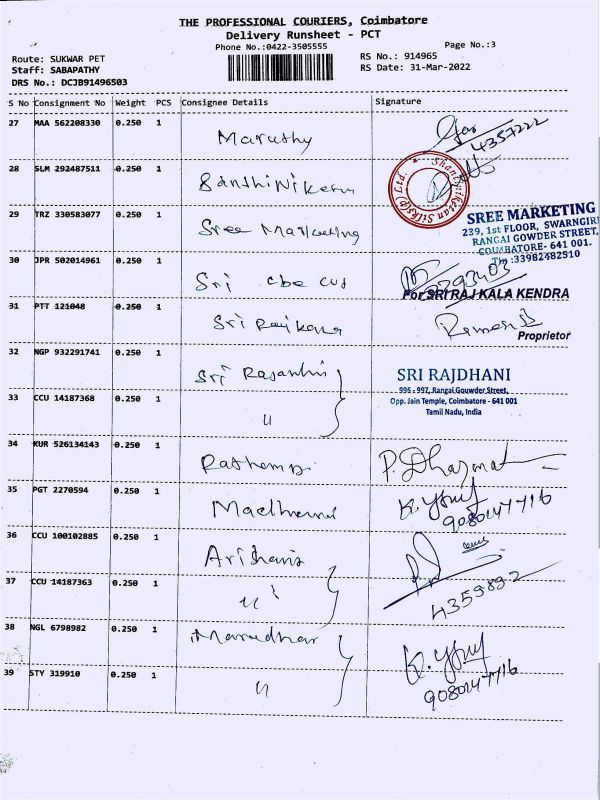 THE PROFESSIONAL COURIERS, Coimbatore
Delivery Runsheet - PCT
Phone No.:0422-3505555
Page No.:3
Route: SUKWAR PET
RS No.: 914965
Staff: SABAPATHY
RS Date: 31-Mar-2022
DRS No.: DCJB91496503
S No Consignment No Weight PCS Consignee Details Signature
27 MAA 562208330 0.250 1 Maruthy
4357222
28 SLM 292487511 0.250 1
Shanthi Niketan Silks(p) Ltd.
29 TRZ 330583077 0.250 1 Sree Marketing
SREE MARKETING
239, 1st FLOOR, SWARNGIRI
RANGAI GOWDER STREET,
COIMBATORE- 641 001.
Ph :33982482510
30 JPR 502014961 0.250 1 Sri cbe cus
For SRI RAJ KALA KENDRA
31 PTT 121048 0.250 1
Proprietor
32 NGP 932291741 0.250 1
SRI RAJDHANI
996 - 997, Rangai Gouwder Street,
Opp. Jain Temple, Coimbatore - 641 001
Tamil Nadu, India
33 CCU 14187368 0.250 1 "
34 KUR 526134143 0.250 1
35 PGT 2270594 0.250 1
9080147716
36 CCU 100102885 0.250 1 Arihant
37 CCU 14187363 0.250 1 "
4359892
38 NGL 6798982 0.250 1 Marudhar
39 STY 319910 0.250 1 "
9080147716